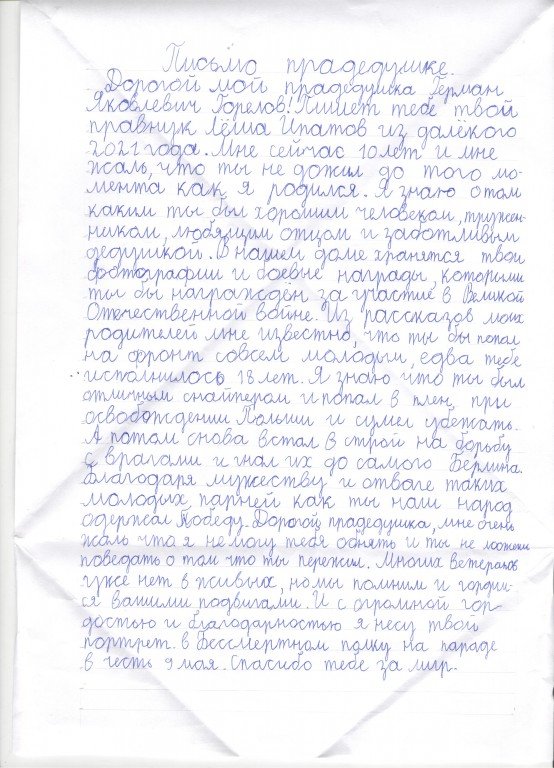 Письмо прадедушке.
Дорогой мой прадедушка Герман
Яковлевич Горелов! Пишет тебе твой
правнук Лёша Ипатов из далёкого
2021 года. Мне сейчас 10 лет и мне
жаль, что ты не дожил до того мо-
мента как я родился. Я знаю о том
каким ты был хорошим человеком, тружен-
неком, любящим отцом и заботливым
дедушкой. В нашем доме хранятся твои
фотографии и боевые награды, которыми
ты бы награждён за участие в Великой
Отечественной войне. Из рассказов моих
родителей мне известно, что ты бы попал
на фронт совсем молодым, едва тебе
исполнилось 18 лет. Я знаю что ты был
отличным снайпером и попал в плен при
освобождении Польши и сумел убежать.
А потом снова встал в строй на борьбу
с врагами и гнал их до самого Берлина.
Благодаря мужеству и отваге таких
молодых парней как ты наш народ
одержал Победу. Дорогой прадедушка, мне очень
жаль что я не могу тебя обнять и ты не можеш
поведать о том что ты пережил. Многих ветеранов
уже нет в живых, но мы помним и гордим-
ся вашими подвигами. И с огромной гор-
достью и благодарностью я несу твой
портрет в Бессмертном полку на параде
в честь 9 мая. Спасибо тебе за мир.